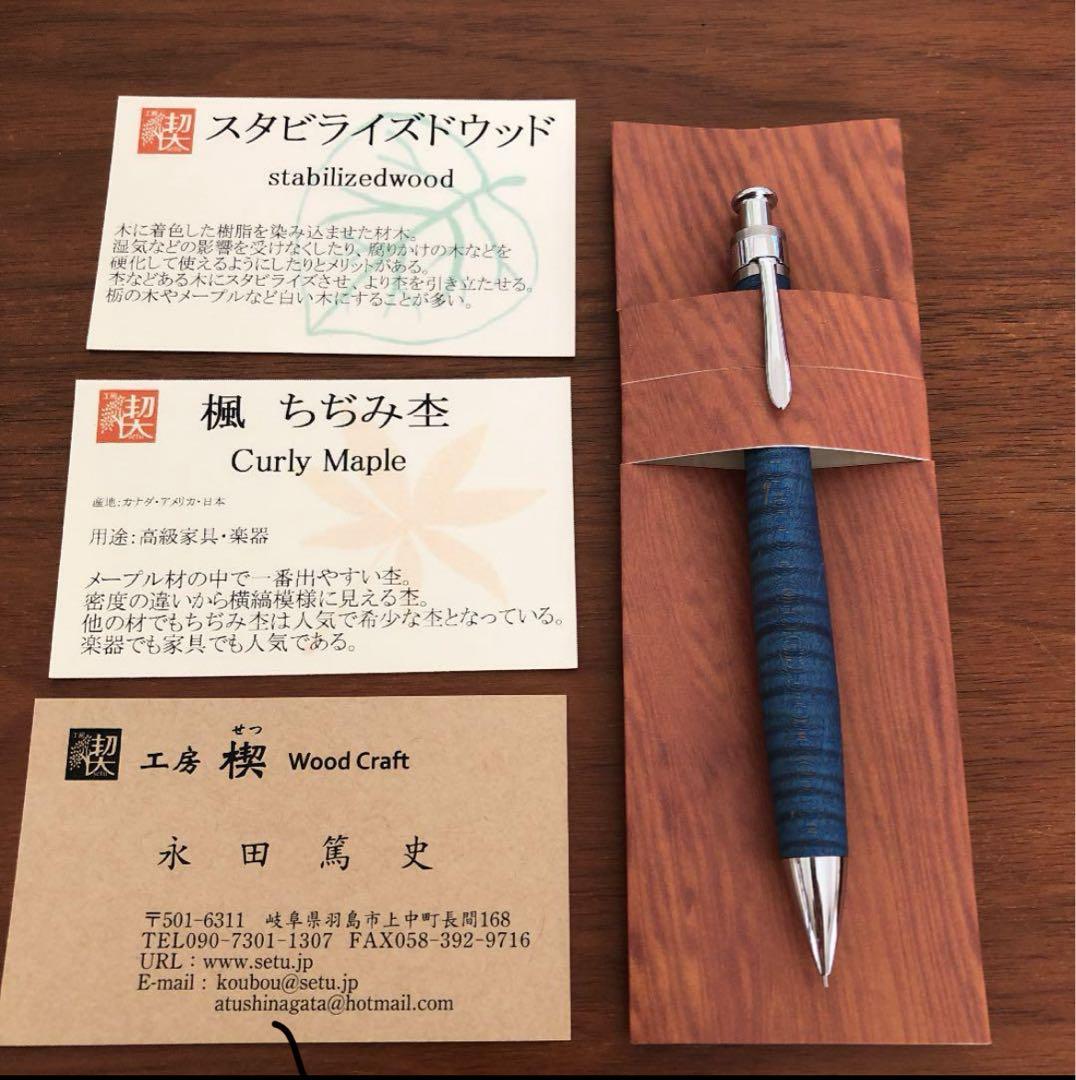 工房 楔 setu
スタビライズドウッド
stabilizedwood
木に着色した樹脂を染み込ませた材木。
湿気などの影響を受けなくしたり、腐りかけの木などを
硬化して使えるようにしたりとメリットがある。
杢などある木にスタビライズさせ、より杢を引き立たせる。
栃の木やメープルなど白い木にすることが多い。
工房 楔 setu
楓 ちぢみ杢
Curly Maple
産地:カナダ・アメリカ・日本
用途:高級家具・楽器
メープル材の中で一番出やすい杢。
密度の違いから横縞模様に見える杢。
他の材でもちぢみ杢は人気で希少な杢となっている。
楽器でも家具でも人気である。
工房 楔 setu
せつ
工房 楔 Wood Craft
永田 篤史
〒501-6311 岐阜県羽島市上中町長間168
TEL090-7301-1307 FAX058-392-9716
URL:www.setu.jp
E-mail: koubou@setu.jp
atushinagata@hotmail.com